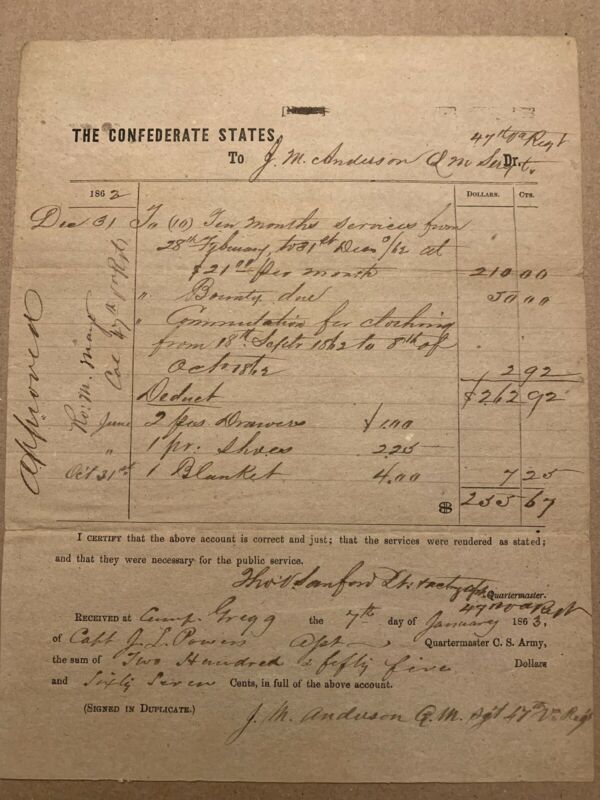 47th Va Regt
THE CONFEDERATE STATES,
To J. M. Anderson Q M Sergt. Dr.
1862 DOLLARS. CTS.
Dec 31 To (10) Ten months services from
28th February, to 31st Decr /62 at
$21 00 per month 210 00
" Bounty due 50 00
" Commutation for clothing
from 18th Septr 1862 to 8th of
Octr 1862 2 92
$262 92
Deduct
June 2 prs Drawers $1.00
" 1 pr: Shoes 2.25
Oct 31st 1 Blanket 4.00 7 25
$ 255 67
Approved
Ro: M. Mayo
Col 47th Va Regt
I CERTIFY that the above account is correct and just; that the services were rendered as stated;
and that they were necessary for the public service.
Tho: V. Sanford Lt &
Quartermaster.
47 Va Regt
RECEIVED at Camp Gregg the 7th day of January 1863,
of Capt J. L. Powers Quartermaster C. S. Army,
the sum of Two Hundred & fifty five Dollars
and Sixty Seven Cents, in full of the above account.
(SIGNED IN DUPLICATE.)
J. M. Anderson Q. M. Sgt 47th Va Regt